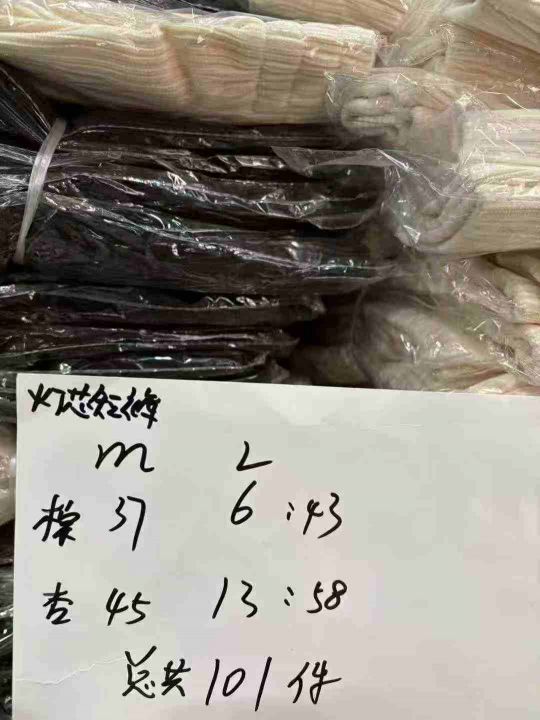 灯芯短裤
M L
棕 37 6 : 43
杏 45 13 : 58
总共 101 件